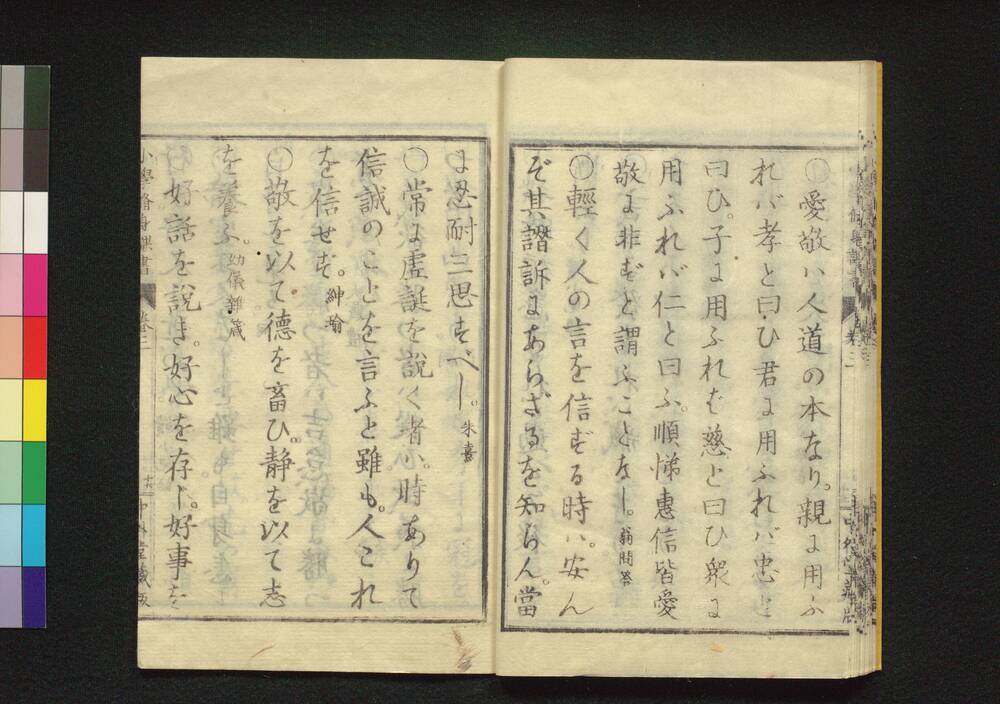 ○愛敬ハ人道の本なり。親に用ふ
れバ孝と曰ひ君に用ふれバ忠と
曰ひ。子に用ふれば慈と曰ひ衆に
用ふれバ仁と曰ふ。順悌惠信皆愛
敬に非ずと謂ふことなし。翁問答
○輕く人の言を信ずる時ハ。安ん
ぞ其譖訴にあらざるを知らん。當
に忍耐三思すべし。朱熹
○常に虚誕を説く者ハ。時ありて
信誠のことを言ふと雖も。人これ
を信せず。紳瑜
○敬を以て德を畜ひ。静を以て志
を養ふ。幼儀雜箴
好話を説き。好心を存し。好事を